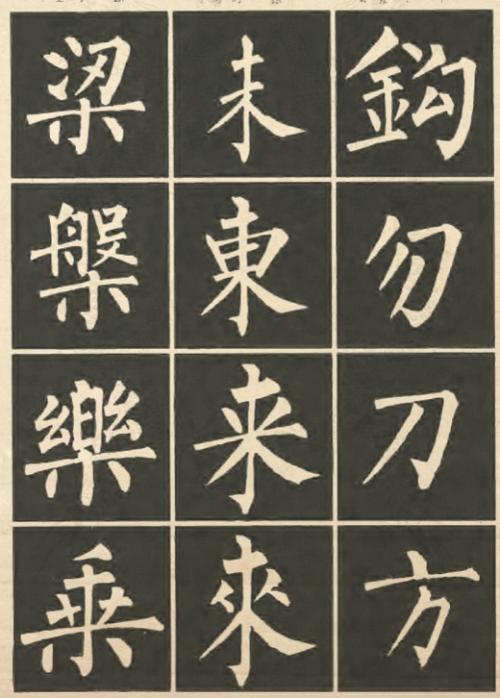 鈎勿刀方
未東来來
梁槃樂乗